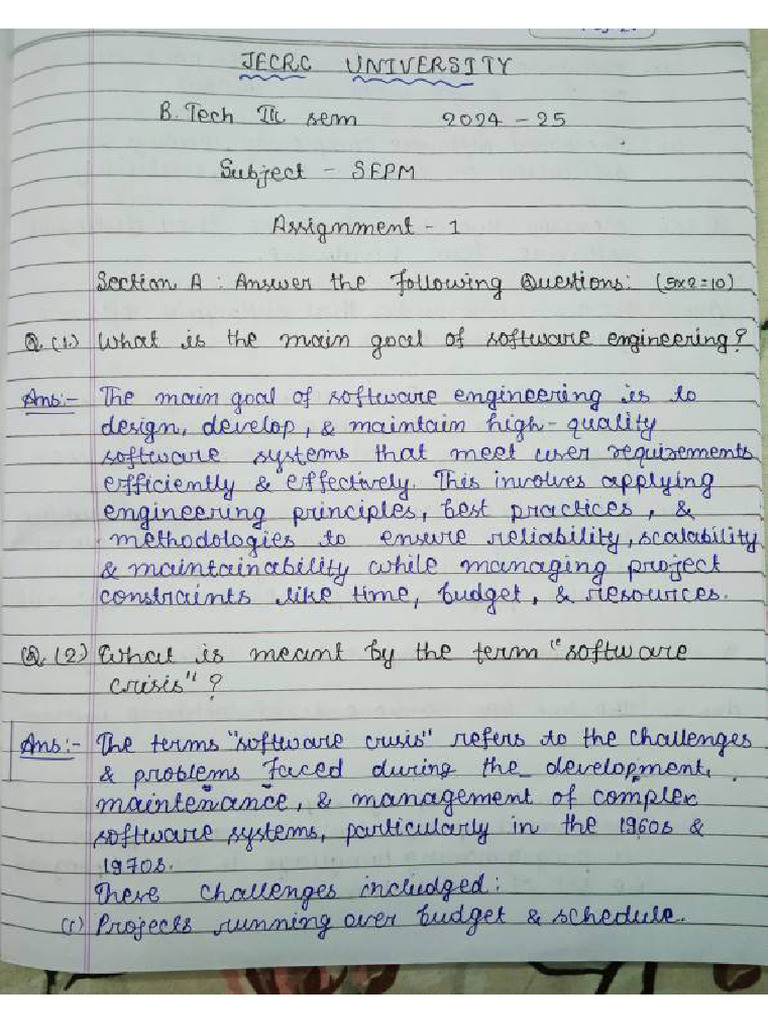 JECRC UNIVERSITY
B.Tech sem 2024-25
Subject - SEPM
Assignment - 1
Section A : Answer the following Questions: (5x2=10)
Q.(1.) What is the main goal of software engineering?
Ans:- The main goal of software engineering is to
design, develop, & maintain high-quality
software systems that meet user requirements
efficiently & effectively. This involves applying
engineering principles, best practices, &
methodologies to ensure reliability, scalability
& maintainability while managing project
constraints like time, budget, & resources.
Q.(2) What is meant by the term "software
crisis"?
Ans:- The terms "software crisis" refers to the challenges
& problems faced during the development,
maintenance, & management of complex
software systems, particularly in the 1960s &
1970s.
These challenges includged:
(1) Projects running over budget & schedule.